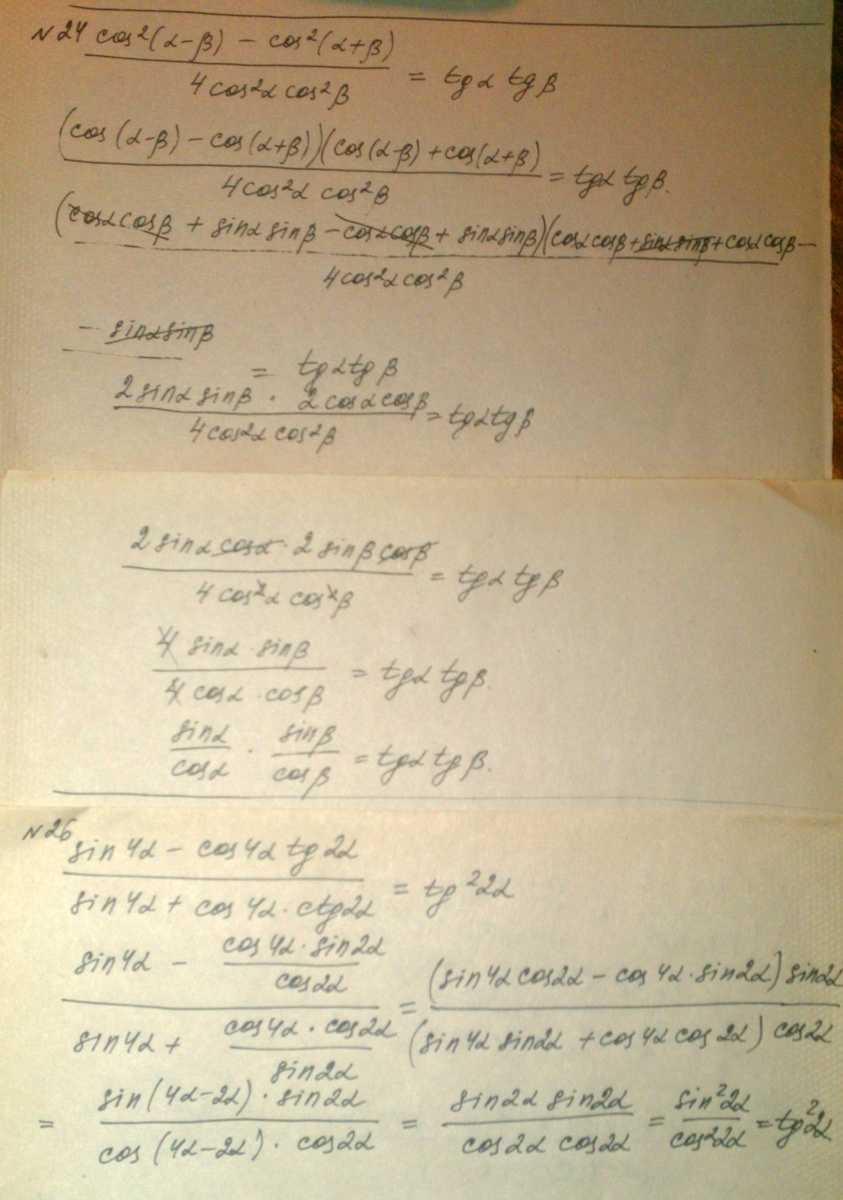 №24 (cos²(α-β) - cos²(α+β)) / (4cos²α cos²β) = tgα tgβ
((cos(α-β) - cos(α+β))(cos(α-β) + cos(α+β))) / (4cos²α cos²β) = tgα tgβ.
(cosα cosβ + sinα sinβ - cosα cosβ + sinα sinβ)(cosα cosβ + sinα sinβ + cosα cosβ -
4cos²α cos²β
- sinα sinβ
= tgα tgβ
(2 sinα sinβ · 2 cosα cosβ) / (4cos²α cos²β) = tgα tgβ
(2 sinα cosα · 2 sinβ cosβ) / (4cos²α cos²β) = tgα tgβ
(4 sinα · sinβ) / (4 cosα · cosβ) = tgα tgβ.
sinα/cosα · sinβ/cosβ = tgα tgβ.
№26
(sin4α - cos4α tg2α) / (sin4α + cos4α · ctg2α) = tg²2α
(sin4α - (cos4α · sin2α)/cos2α) / (sin4α + (cos4α · cos2α)/sin2α) = ((sin4α cos2α - cos4α · sin2α) sin2α) / ((sin4α sin2α + cos4α cos2α) cos2α)
= (sin(4α-2α) · sin2α) / (cos(4α-2α) · cos2α) = (sin2α sin2α) / (cos2α cos2α) = sin²2α/cos²2α = tg²2α.